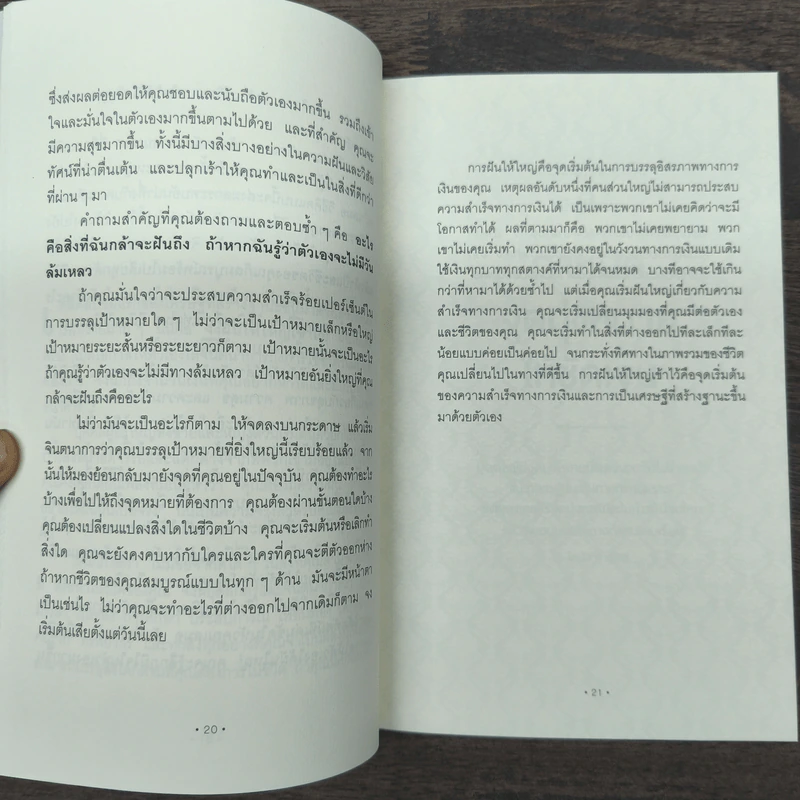 ซึ่งส่งผลต่อยอดให้คุณชอบและนับถือตัวเองมากขึ้น รวมถึงเข้า
ใจและมั่นใจในตัวเองมากขึ้นตามไปด้วย และที่สำคัญ คุณจะ
มีความสุขมากขึ้น ทั้งนี้มีบางสิ่งบางอย่างในความฝันและวิสัย
ทัศน์ที่น่าตื่นเต้น และปลุกเร้าให้คุณทำและเป็นในสิ่งที่ดีกว่า
ที่ผ่าน ๆ มา
คำถามสำคัญที่คุณต้องถามและตอบซ้ำ ๆ คือ อะไร
คือสิ่งที่ฉันกล้าจะฝันถึง ถ้าหากฉันรู้ว่าตัวเองจะไม่มีวัน
ล้มเหลว
ถ้าคุณมั่นใจว่าจะประสบความสำเร็จร้อยเปอร์เซ็นต์ใน
การบรรลุเป้าหมายใด ๆ ไม่ว่าจะเป็นเป้าหมายเล็กหรือใหญ่
เป้าหมายระยะสั้นหรือระยะยาวก็ตาม เป้าหมายนั้นจะเป็นอะไร
ถ้าคุณรู้ว่าตัวเองจะไม่มีทางล้มเหลว เป้าหมายอันยิ่งใหญ่ที่คุณ
กล้าจะฝันถึงคืออะไร
ไม่ว่ามันจะเป็นอะไรก็ตาม ให้จดลงบนกระดาษ แล้วเริ่ม
จินตนาการว่าคุณบรรลุเป้าหมายที่ยิ่งใหญ่นี้เรียบร้อยแล้ว จาก
นั้นให้มองย้อนกลับมายังจุดที่คุณอยู่ในปัจจุบัน คุณต้องทำอะไร
บ้างเพื่อไปให้ถึงจุดหมายที่ต้องการ คุณต้องผ่านขั้นตอนใดบ้าง
คุณต้องเปลี่ยนแปลงสิ่งใดในชีวิตบ้าง คุณจะเริ่มต้นหรือเลิกทำ
สิ่งใด คุณจะยังคงคบหากับใครและใครที่คุณจะตีตัวออกห่าง
ถ้าหากชีวิตของคุณสมบูรณ์แบบในทุก ๆ ด้าน มันจะมีหน้าตา
เป็นเช่นไร ไม่ว่าคุณจะทำอะไรที่ต่างออกไปจากเดิมก็ตาม จง
เริ่มต้นเสียตั้งแต่วันนี้เลย
• 20 •
การฝันให้ใหญ่คือจุดเริ่มต้นในการบรรลุอิสรภาพทางการ
เงินของคุณ เหตุผลอันดับหนึ่งที่คนส่วนใหญ่ไม่สามารถประสบ
ความสำเร็จทางการเงินได้ เป็นเพราะพวกเขาไม่เคยคิดว่าจะมี
โอกาสทำได้ ผลที่ตามมาก็คือ พวกเขาไม่เคยพยายาม พวก
เขาไม่เคยเริ่มทำ พวกเขายังคงอยู่ในวังวนทางการเงินแบบเดิม
ใช้เงินทุกบาททุกสตางค์ที่หามาได้จนหมด บางทีอาจจะใช้เกิน
กว่าที่หามาได้ด้วยซ้ำไป แต่เมื่อคุณเริ่มฝันใหญ่เกี่ยวกับความ
สำเร็จทางการเงิน คุณจะเริ่มเปลี่ยนมุมมองที่คุณมีต่อตัวเอง
และชีวิตของคุณ คุณจะเริ่มทำในสิ่งที่ต่างออกไปทีละเล็กทีละ
น้อยแบบค่อยเป็นค่อยไป จนกระทั่งทิศทางในภาพรวมของชีวิต
คุณเปลี่ยนไปในทางที่ดีขึ้น การฝันให้ใหญ่เข้าไว้คือจุดเริ่มต้น
ของความสำเร็จทางการเงินและการเป็นเศรษฐีที่สร้างฐานะขึ้น
มาด้วยตัวเอง
• 21 •